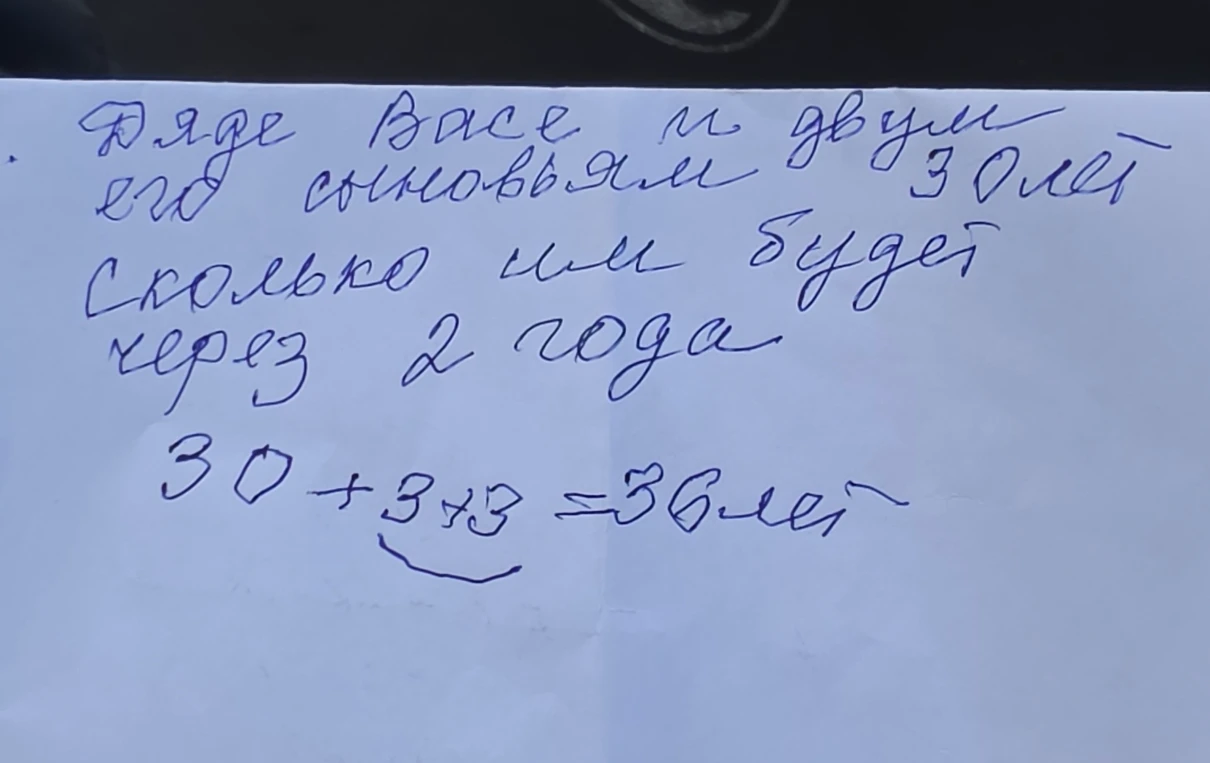 Дяде Васе и двум
его сыновьям 30 лет
Сколько им будет
через 2 года
30 + 3+3 = 36 лет